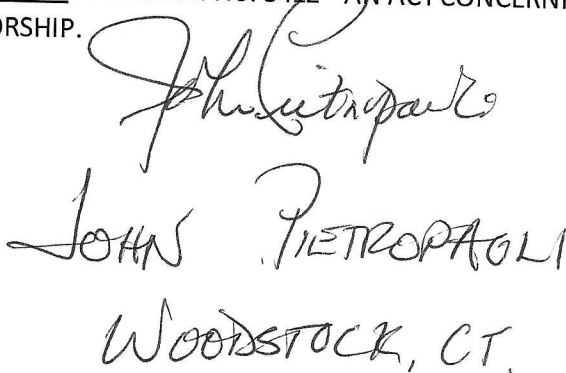 AN ACT CONCERNI
ORSHIP.
John Pietropaoli
JOHN PIETROPAOLI
WOODSTOCK, CT.